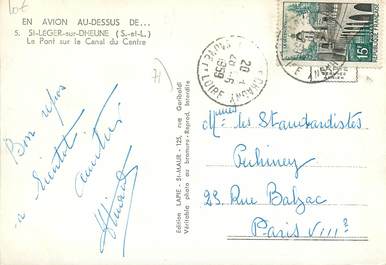 Lot
EN AVION AU-DESSUS DE...
5. St-LÉGER-sur-DHEUNE (S.-et-L.)
Le Pont sur le Canal du Centre
71
Bon repos
Bientôt
amitiés
Édition LAPIE - St-MAUR - 125, rue Garibaldi
Véritable photo au bromure - Reprod. Interdite
CHAGNY
20
1959
SAONE ET LOIRE
15F
Mmes les Standardistes
Pechiney
23 Rue Balzac
Paris VIII